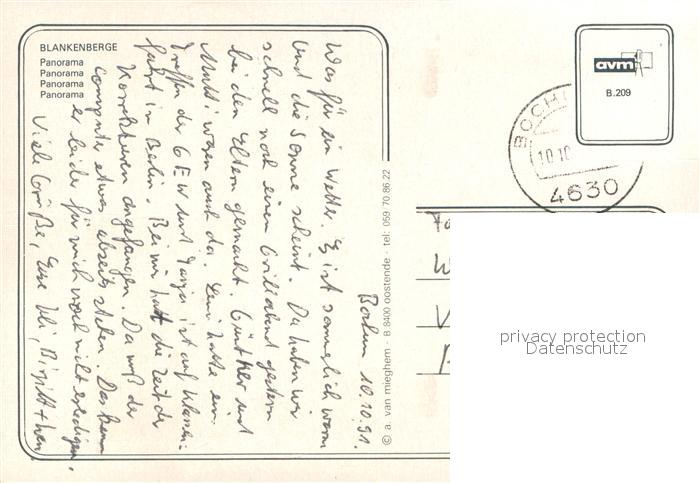 BLANKENBERGE
Panorama
Panorama
Panorama
Panorama
Bochum 10.10.91.
Was für ein Wetter. Es ist sommerlich warm
und die Sonne scheint. Da haben wir
schnell noch einen Grillabend gestern
bei den Eltern gemacht. Günther und
Mutti waren auch da. Leni hatte ein
Treffen der GEW und Tanja ist auf Klassen-
fahrt in Berlin. Bei mir hat die Zeit der
Korrekturen angefangen. Da muß der
Computer etwas abseits stehen. Das kann
er leider für mich noch nicht erledigen.
Viele Grüße, Eure Uli, Birgitt +
© a. van mieghem - B.8400 oostende - tel: 059 70.86.22
avm
B.209
BOCHU
10.10
4630
privacy protection
Datenschutz